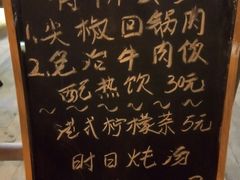 1.尖椒回锅肉
2.免治牛肉饭
配热饮 30元
~ ~ ~ ~ ~ ~ ~
港式柠檬茶 5元
时日炖汤